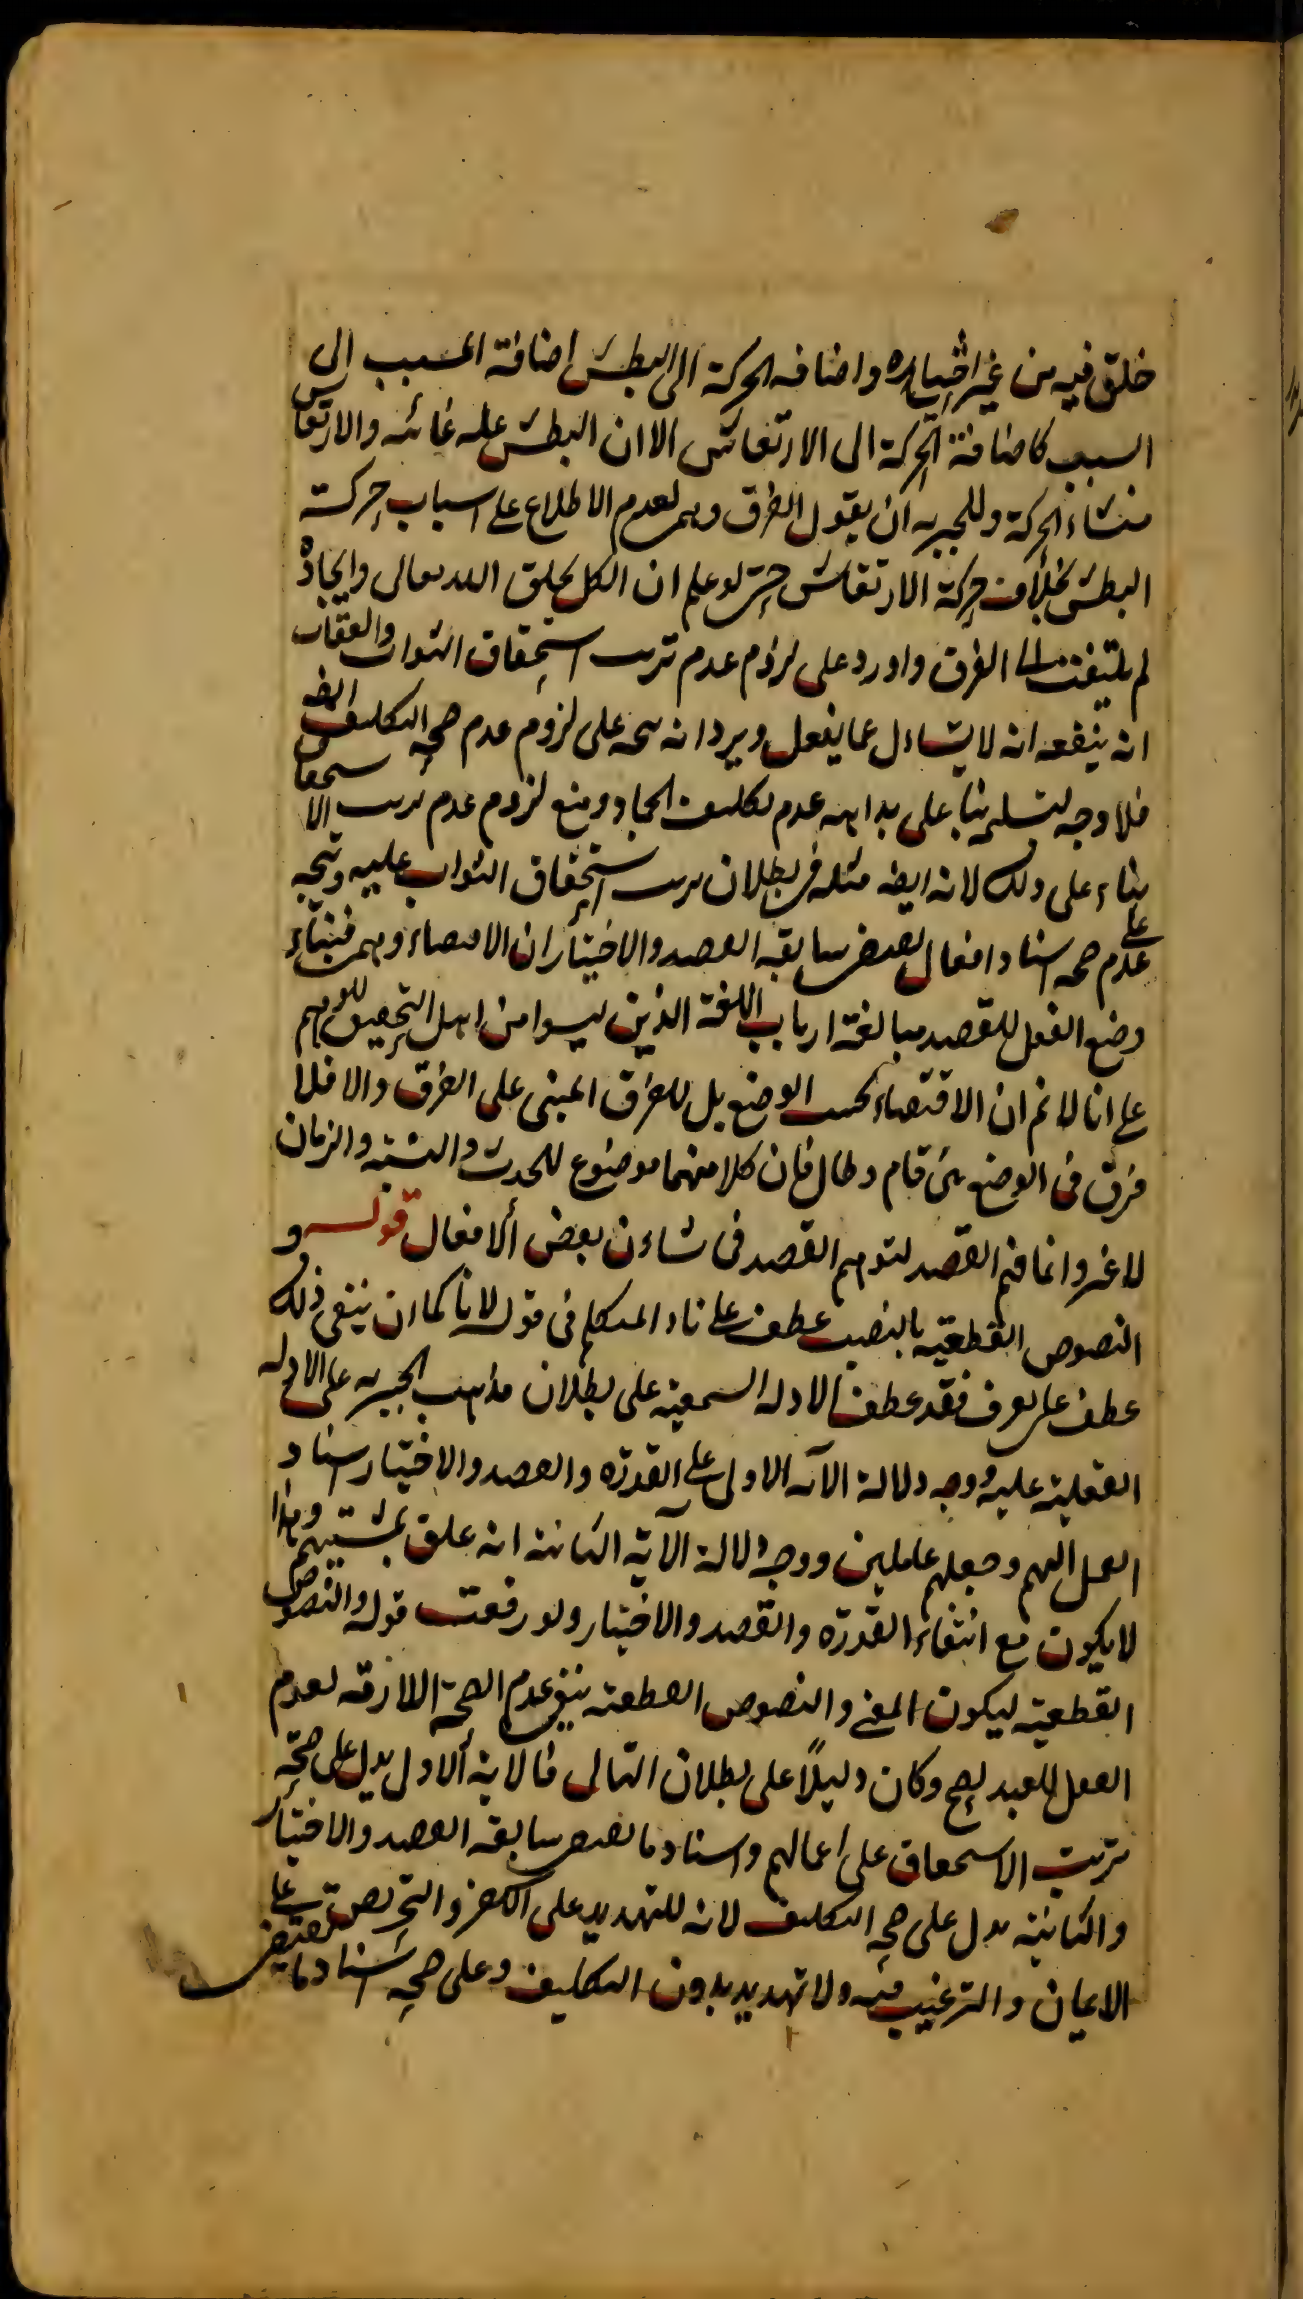 خلق فيه من غير اختياره واضافه الحركة الى البطش اضافة المسبب الى
السبب كاضافة الحركة الى الارتعاش الا ان البطش عله غائه والارتعاش
منشاء الحركة وللجبريه ان يقول الفرق وهم لعدم الاطلاع على اسباب حركت
البطش بخلاف حركة الارتعاش حتى لو علم ان الكل بخلق الله تعالى وايجاده
لم يلتفت الى الفرق واورد على لزوم عدم ترتب استحقاق الثواب والعقاب
انه ينفعه انه لا يسئل عما يفعل ويرد انه يتجه على لزوم عدم صحة التكليف ايضه
فلا وجه لتسليمه بنا على بداهه عدم تكليف الجماد ومنع لزوم عدم ترتب الاستحقاق
بناء على ذلك لانه ايضه مثله فى بطلان ترتب استحقاق الثواب عليه ويتجه
على عدم صحه اسناد افعال يقتضى سابقه القصد والاختيار ان الاقتضاء وهمى فبناء
وضع الفعل للقصد مبالغة ارباب اللغة الذين ليسوا من اهل التحقيق للوهم
على انا لا نم ان الاقتضاء بحسب الوضع بل للعرف المبنى على الفرق والا فلا
فرق فى الوضع بين قام وطال فان كلا منهما موضوع للحدث والنسبه والزمان
لا غير وانما فهم القصد لتوهم القصد فى شاءن بعض الافعال قوله و
النصوص القطعيه بالنصب عطف على ناء المتكلم فى قوله لانا كما ان ينفى ذلك
عطف على يعرف فقد عطف الادله السمعيه على بطلان مذاهب الجبريه على الادله
العقلية عليه ووجه دلالة الآيه الاولى على القدره والقصد والاختيار اسناد
العمل اليهم وجعلهم عاملين ووجه دلالة الآية الثانيه انه علق بمشيتهم وهذا
لا يكون مع انتفاء القدره والقصد والاختيار ولو رفعت قوله والنصوص
القطعيه ليكون المعنى والنصوص القطعيه ينفى عدم الصحة اللازمه لعدم
الفعل للعبد لصح وكان دليلاً على بطلان التالى فالاية الاولى يدل على صحة
ترتيب الاستحقاق على اعمالهم واسناد ما يقتضى سابقه القصد والاختيار
والثانيه يدل على صحة التكليف لانه للتهديد على الكفر والتحريص على
الايمان والترغيب فيه ولا تهديد بدون التكليف وعلى صحة اسناد ما يقتضى